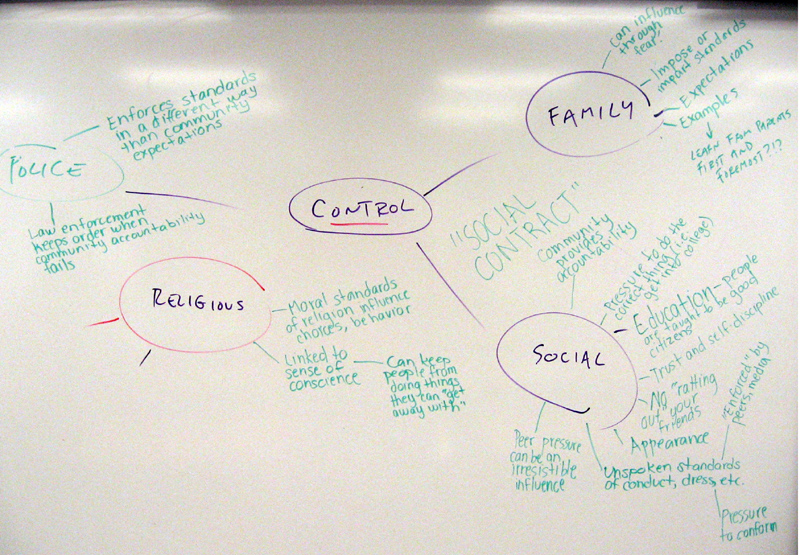 Can influence
through
fear?
Impose or
impart standards
FAMILY
Expectations
Examples
LEARN FROM PARENTS
FIRST AND
FOREMOST?!?
Enforces standards
in a different way
than community
expectations
POLICE
Law enforcement
keeps order when
community accountability
fails
CONTROL
"SOCIAL
CONTRACT"
Community
provides
accountability
Pressure to do the
correct thing (i.e.
get into college)
Education - people
are taught to be good
citizens
SOCIAL
Trust and self-discipline
No "ratting
out" your
friends
"Enforced" by
peers, media
Appearance
Unspoken standards
of conduct, dress, etc.
Pressure
to conform
Peer pressure
can be an
irresistible
influence
RELIGIOUS
Moral standards
of religion influence
choices, behavior
Linked to
sense of
conscience
Can keep
people from
doing things
they can "get
away with"